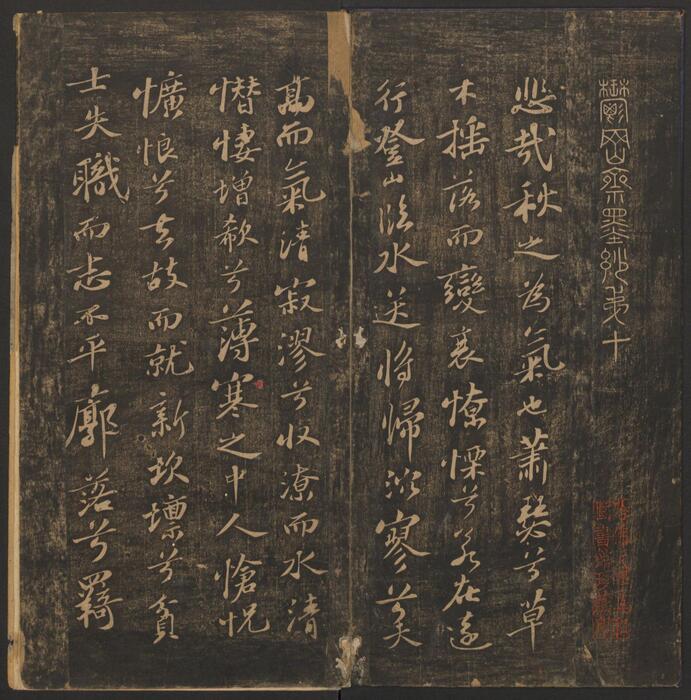 鬱岡齋墨妙第十
悲哉秋之為氣也蕭瑟兮草
木搖落而變衰憭慄兮若在遠
行登山臨水送將歸泬寥兮天
高而氣清寂漻兮收潦而水清
憯悽增欷兮薄寒之中人愴怳
懭悢兮去故而就新坎壈兮貧
士失職而志不平廓落兮羇